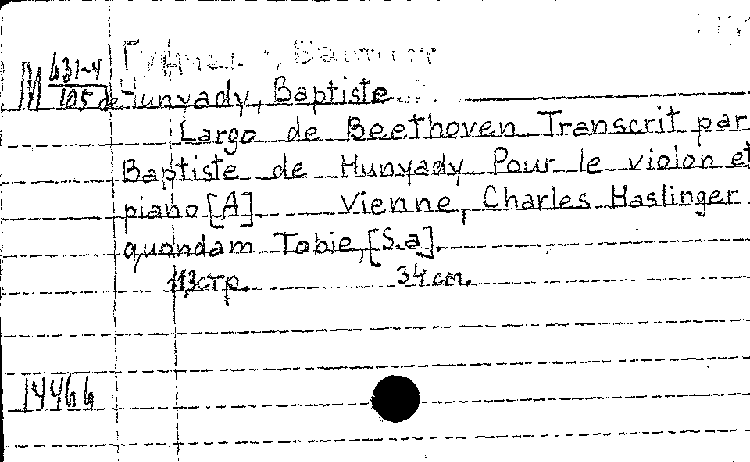 M 631-4
105 de Hunyady, Baptiste
Largo de Beethoven Transcrit par
Baptiste de Hunyady Pour le violon et
piano [A] Vienne, Charles Haslinger
quondam Tobie, [S.a].
стр. 34 cm.
14466